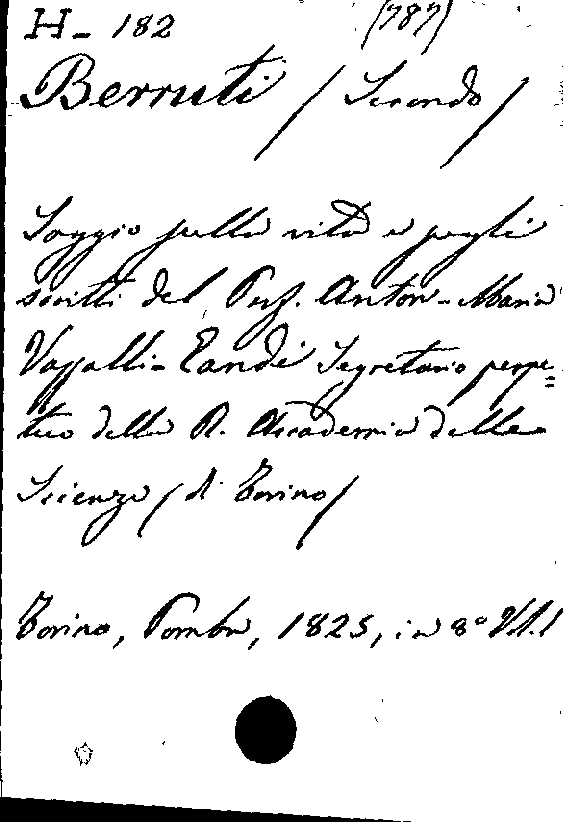 H- 182 (787)
Berruti / Secondo /
Saggio sulla vita e sugli
scritti del Prof. Anton-Maria
Vassalli-Eandi Segretario perpe=
tuo della R. Accademia delle
Scienze / di Torino /
Torino, Pomba, 1825, in 8° Vol. 1